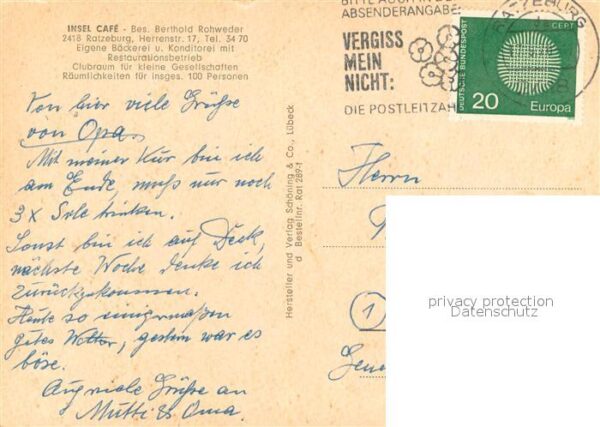 INSEL CAFÉ - Bes. Berthold Rohweder
2418 Ratzeburg, Herrenstr. 17, Tel. 34 70
Eigene Bäckerei u. Konditorei mit
Restaurationsbetrieb
Clubraum für kleine Gesellschaften
Räumlichkeiten für insges. 100 Personen
Von hier viele Grüße
von Opa.
Mit meiner Kur bin ich
am Ende, muß nur noch
3 x Sole trinken.
Sonst bin ich auf Deck,
nächste Woche denke ich
zurückzukommen.
Heute so einigermaßen
gutes Wetter, gestern war es
böse.
Auch viele Grüße an
Mutti Oma.
Hersteller und Verlag Schöning & Co., Lübeck
Bestellnr. Rat 289
ABSENDERANGABE:
VERGISS
MEIN
NICHT:
DIE POSTLEITZAH
DEUTSCHE BUNDESPOST
CEPT
20 Europa
Herrn
1
privacy protection
Datenschutz